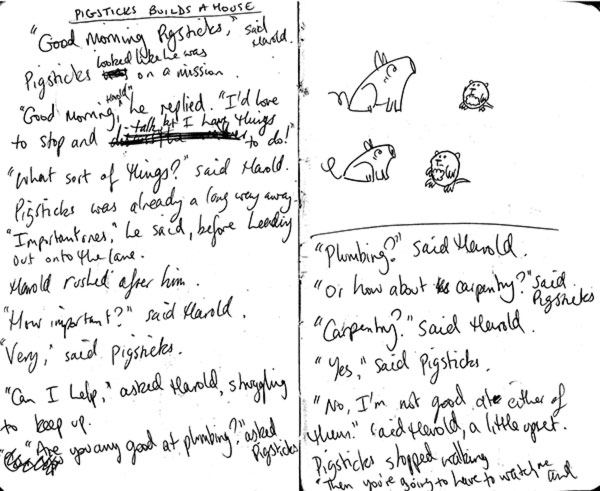 PIGSTICKS BUILDS A HOUSE
"Good Morning Pigsticks," said Harold.
Pigsticks looked like he was
on a mission.
"Good morning, Harold" he replied. "I'd love
to stop and talk but I have things
to do!"
"What sort of things?" said Harold.
Pigsticks was already a long way away.
"Important ones," he said, before heading
out onto the lane.
Harold rushed after him.
"How important?" said Harold.
"Very," said Pigsticks.
"Can I help," asked Harold, struggling
to keep up.
"Are you any good at plumbing?" asked
Pigsticks
"Plumbing?" said Harold.
"Or how about carpentry?" said
Pigsticks
"Carpentry?" said Harold.
"Yes," said Pigsticks.
"No, I'm not good at either of
them." said Harold, a little upset.
Pigsticks stopped walking
"Then you're going to have to watch me and